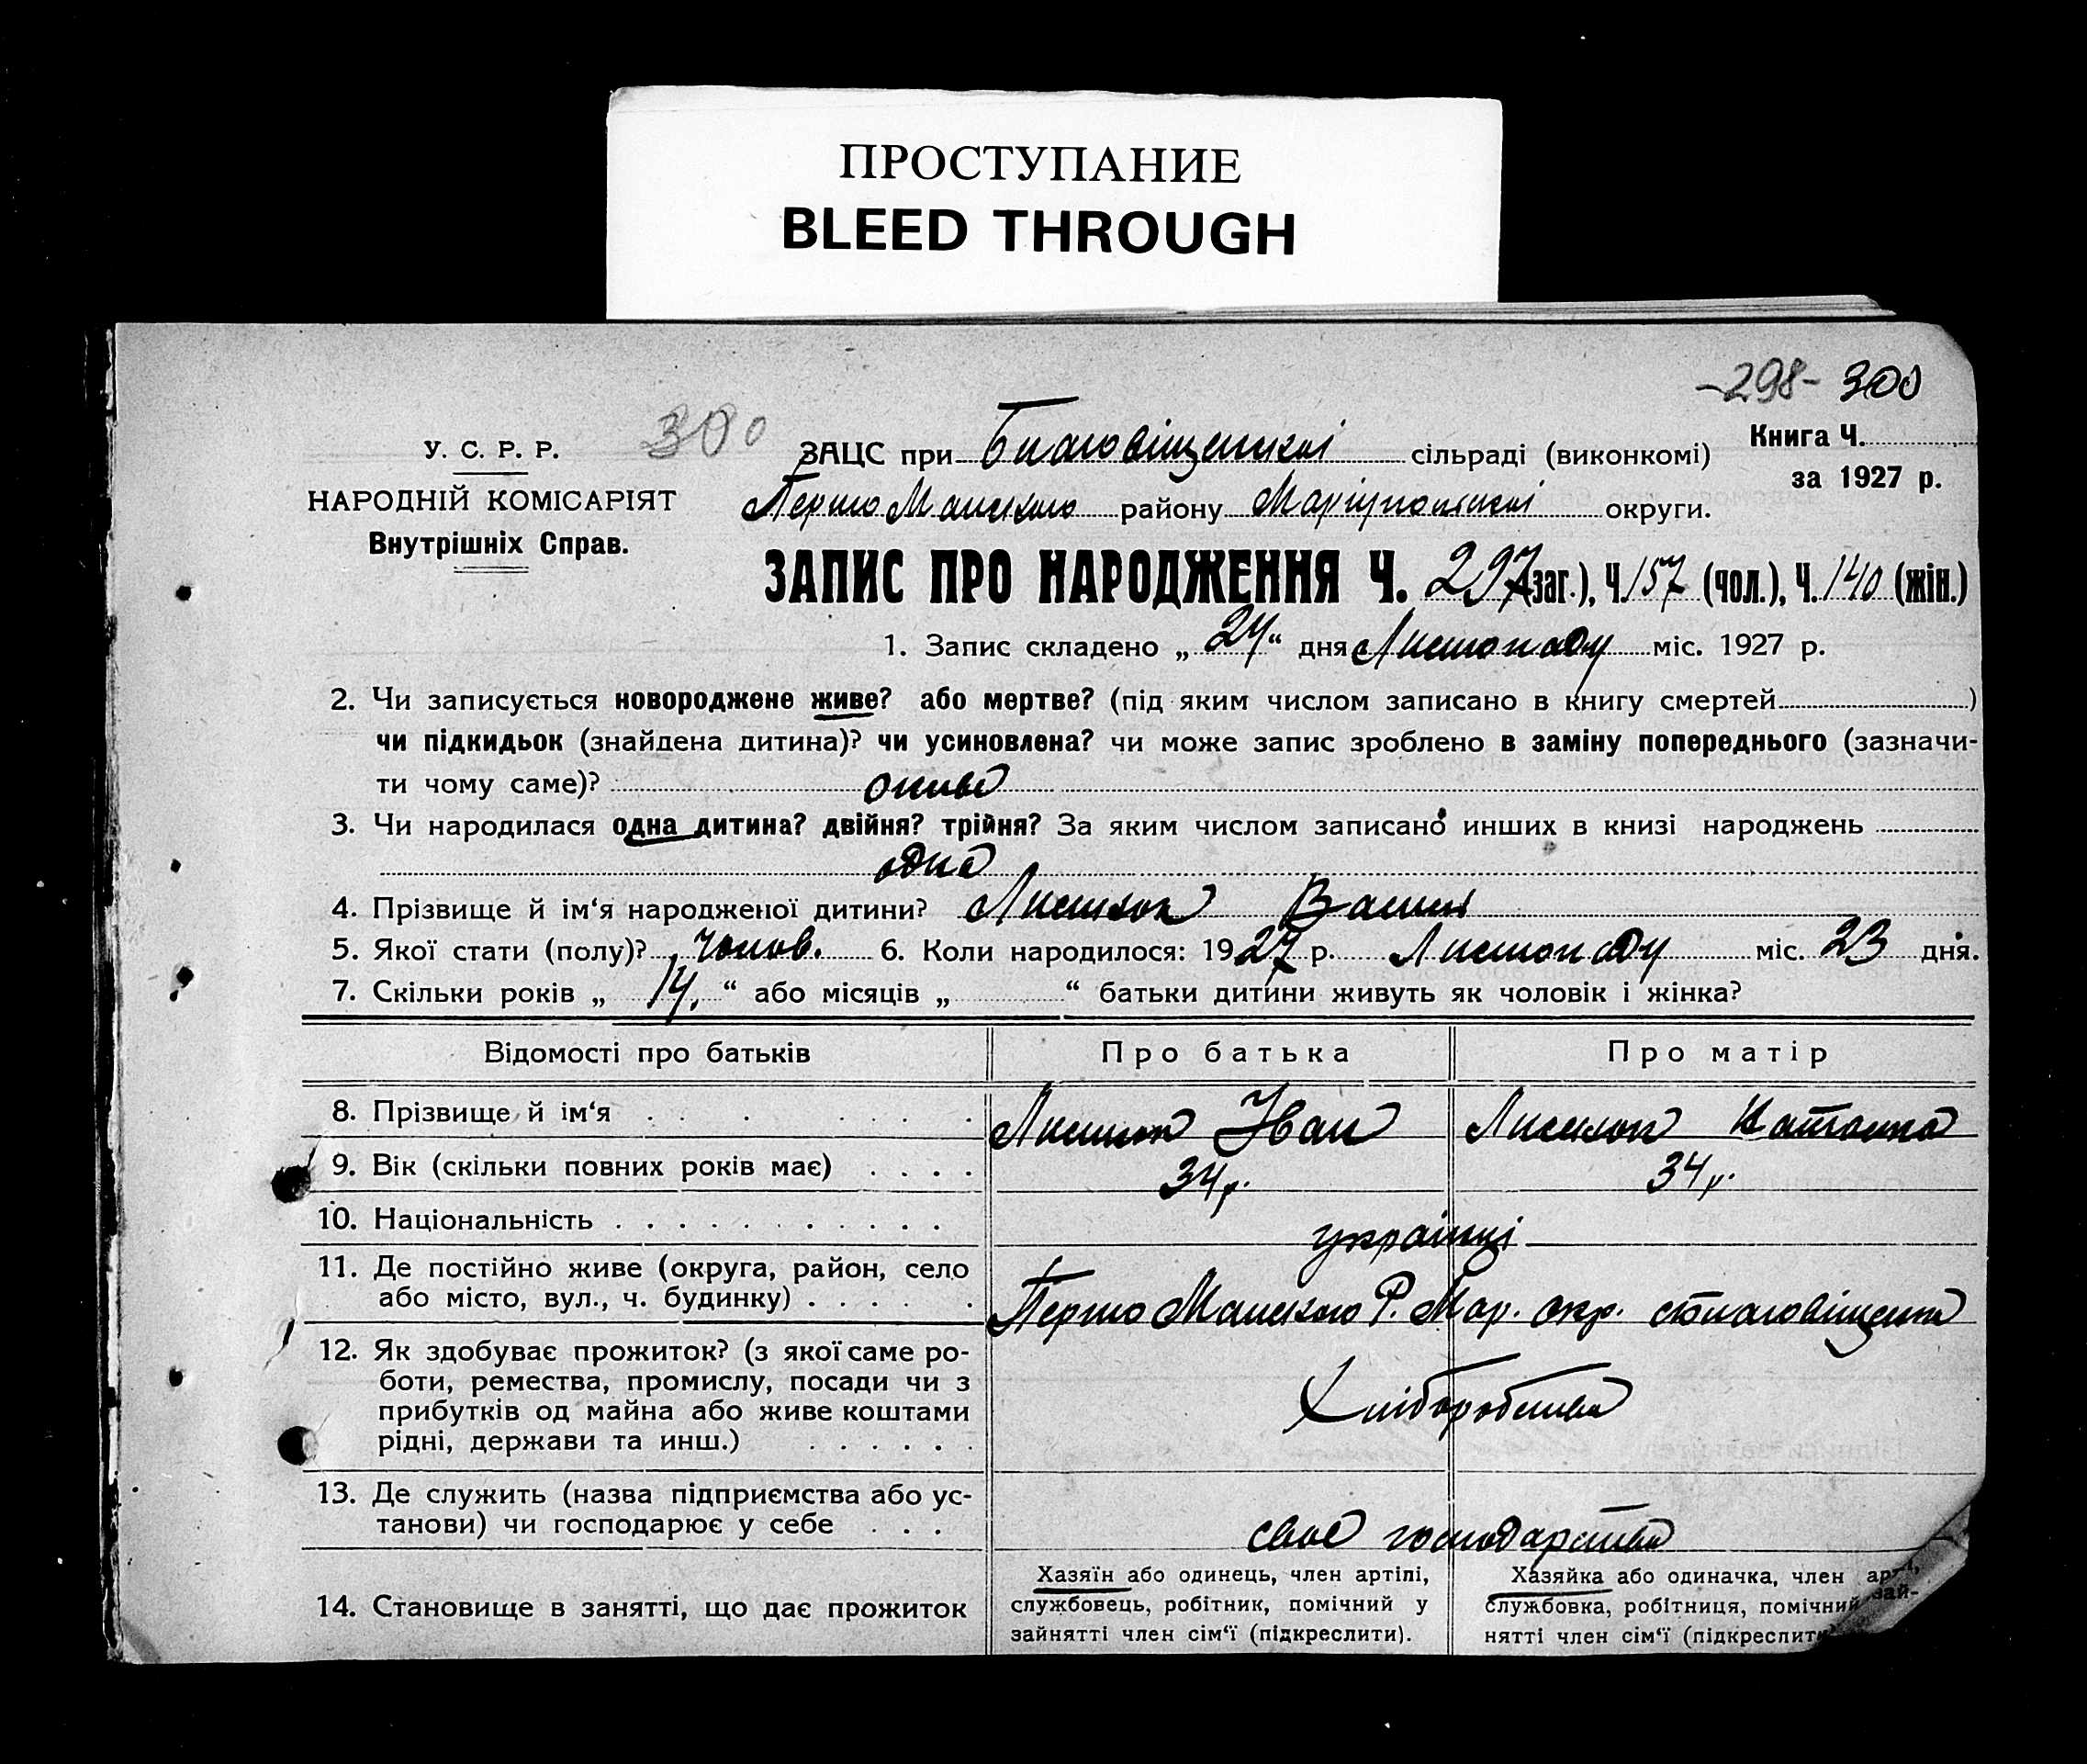 ПРОСТУПАНИЕ
BLEED THROUGH
-298- 300
У. С. Р. Р.
300
ЗАЦС при Благовіщенскі сільраді (виконкомі)
Книга Ч.
за 1927 р.
НАРОДНІЙ КОМІСАРІЯТ
Внутрішніх Справ.
Перто Манского району Маріупольскі округи.
ЗАПИС ПРО НАРОДЖЕННЯ Ч. 297 (заг.), Ч. 157 (чол.), Ч. 140 (жін.)
1. Запис складено „ 24 “ дня Листопаду міс. 1927 р.
2. Чи записується новороджене живе? або мертве? (під яким числом записано в книгу смертей )
чи підкидьок (знайдена дитина)? чи усиновлена? чи може запис зроблено в заміну попереднього (зазначи-
ти чому саме)? живе
3. Чи народилася одна дитина? двійня? трійня? За яким числом записано инших в книзі народжень
одна
4. Прізвище й ім‘я народженої дитини? Василь
5. Якої стати (полу)? чолов. 6. Коли народилося: 1927 р. Листопаду міс. 23 дня.
7. Скільки років „ 14, “ або місяців „ “ батьки дитини живуть як чоловік і жінка?
Відомості про батьків
Про батька
Про матір
8. Прізвище й ім‘я
Іван
9. Вік (скільки повних років має)
34 р.
34 р.
10. Національність
українці
11. Де постійно живе (округа, район, село
або місто, вул., ч. будинку)
Перто Манского Р. Мар. окр.
12. Як здобуває прожиток? (з якої саме ро-
боти, ремества, промислу, посади чи з
прибутків од майна або живе коштами
рідні, держави та инш.)
Хліборобство
13. Де служить (назва підприємства або ус-
танови) чи господарює у себе
своє господарство
14. Становище в занятті, що дає прожиток
Хазяїн або одинець, член артілі,
службовець, робітник, помічний у
зайнятті член сім‘ї (підкреслити).
Хазяйка або одиначка, член арті,
службовка, робітниця, помічний зай-
нятті член сім‘ї (підкреслити